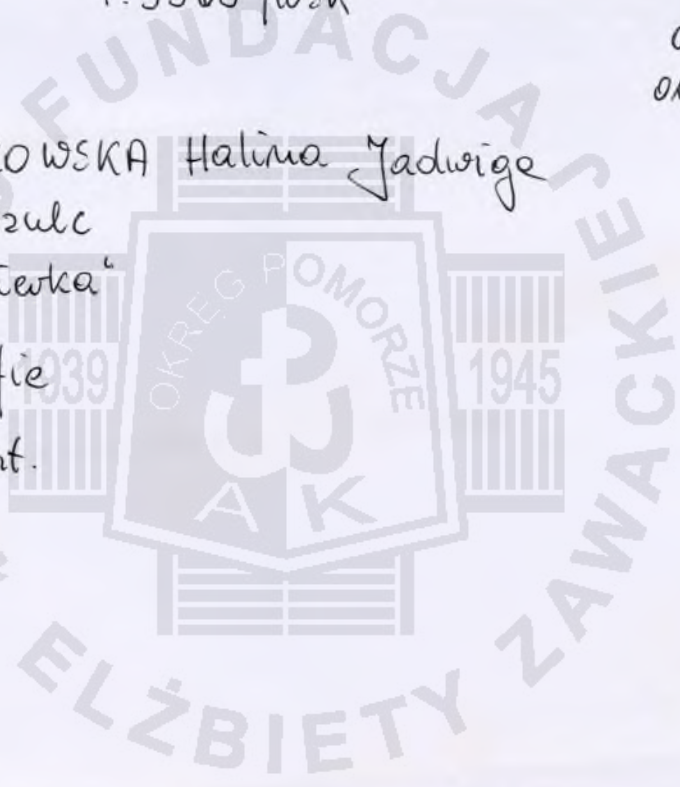 OWSKA Halina Jadwiga
zulc
ewka"
fie
nt.
FUNDACJA
ELŻBIETY ZAWACKIEJ
OKRĘG POMORZE
1939
1945
AK